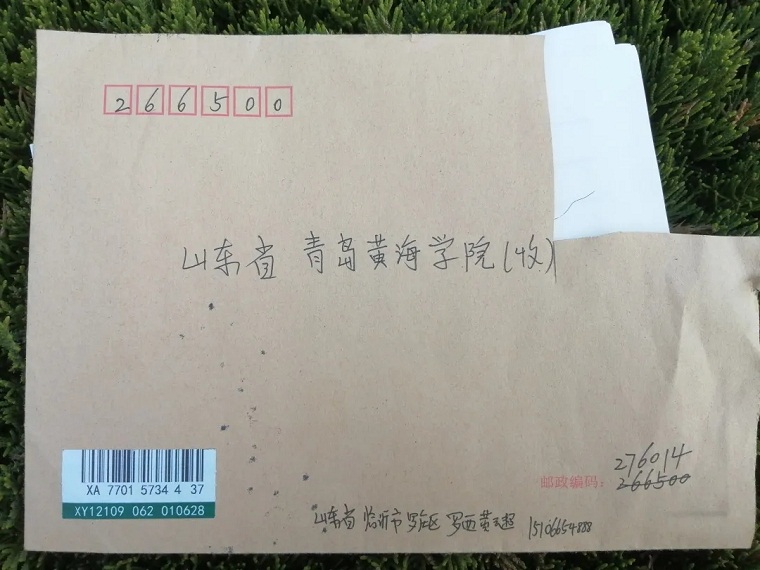 266500
山东省 青岛黄海学院(收)
XA 7701 5734 4 37
XY12109 062 010628
276014
邮政编码: 266500
山东省 临沂市 罗庄区 罗西黄 超 15106654888